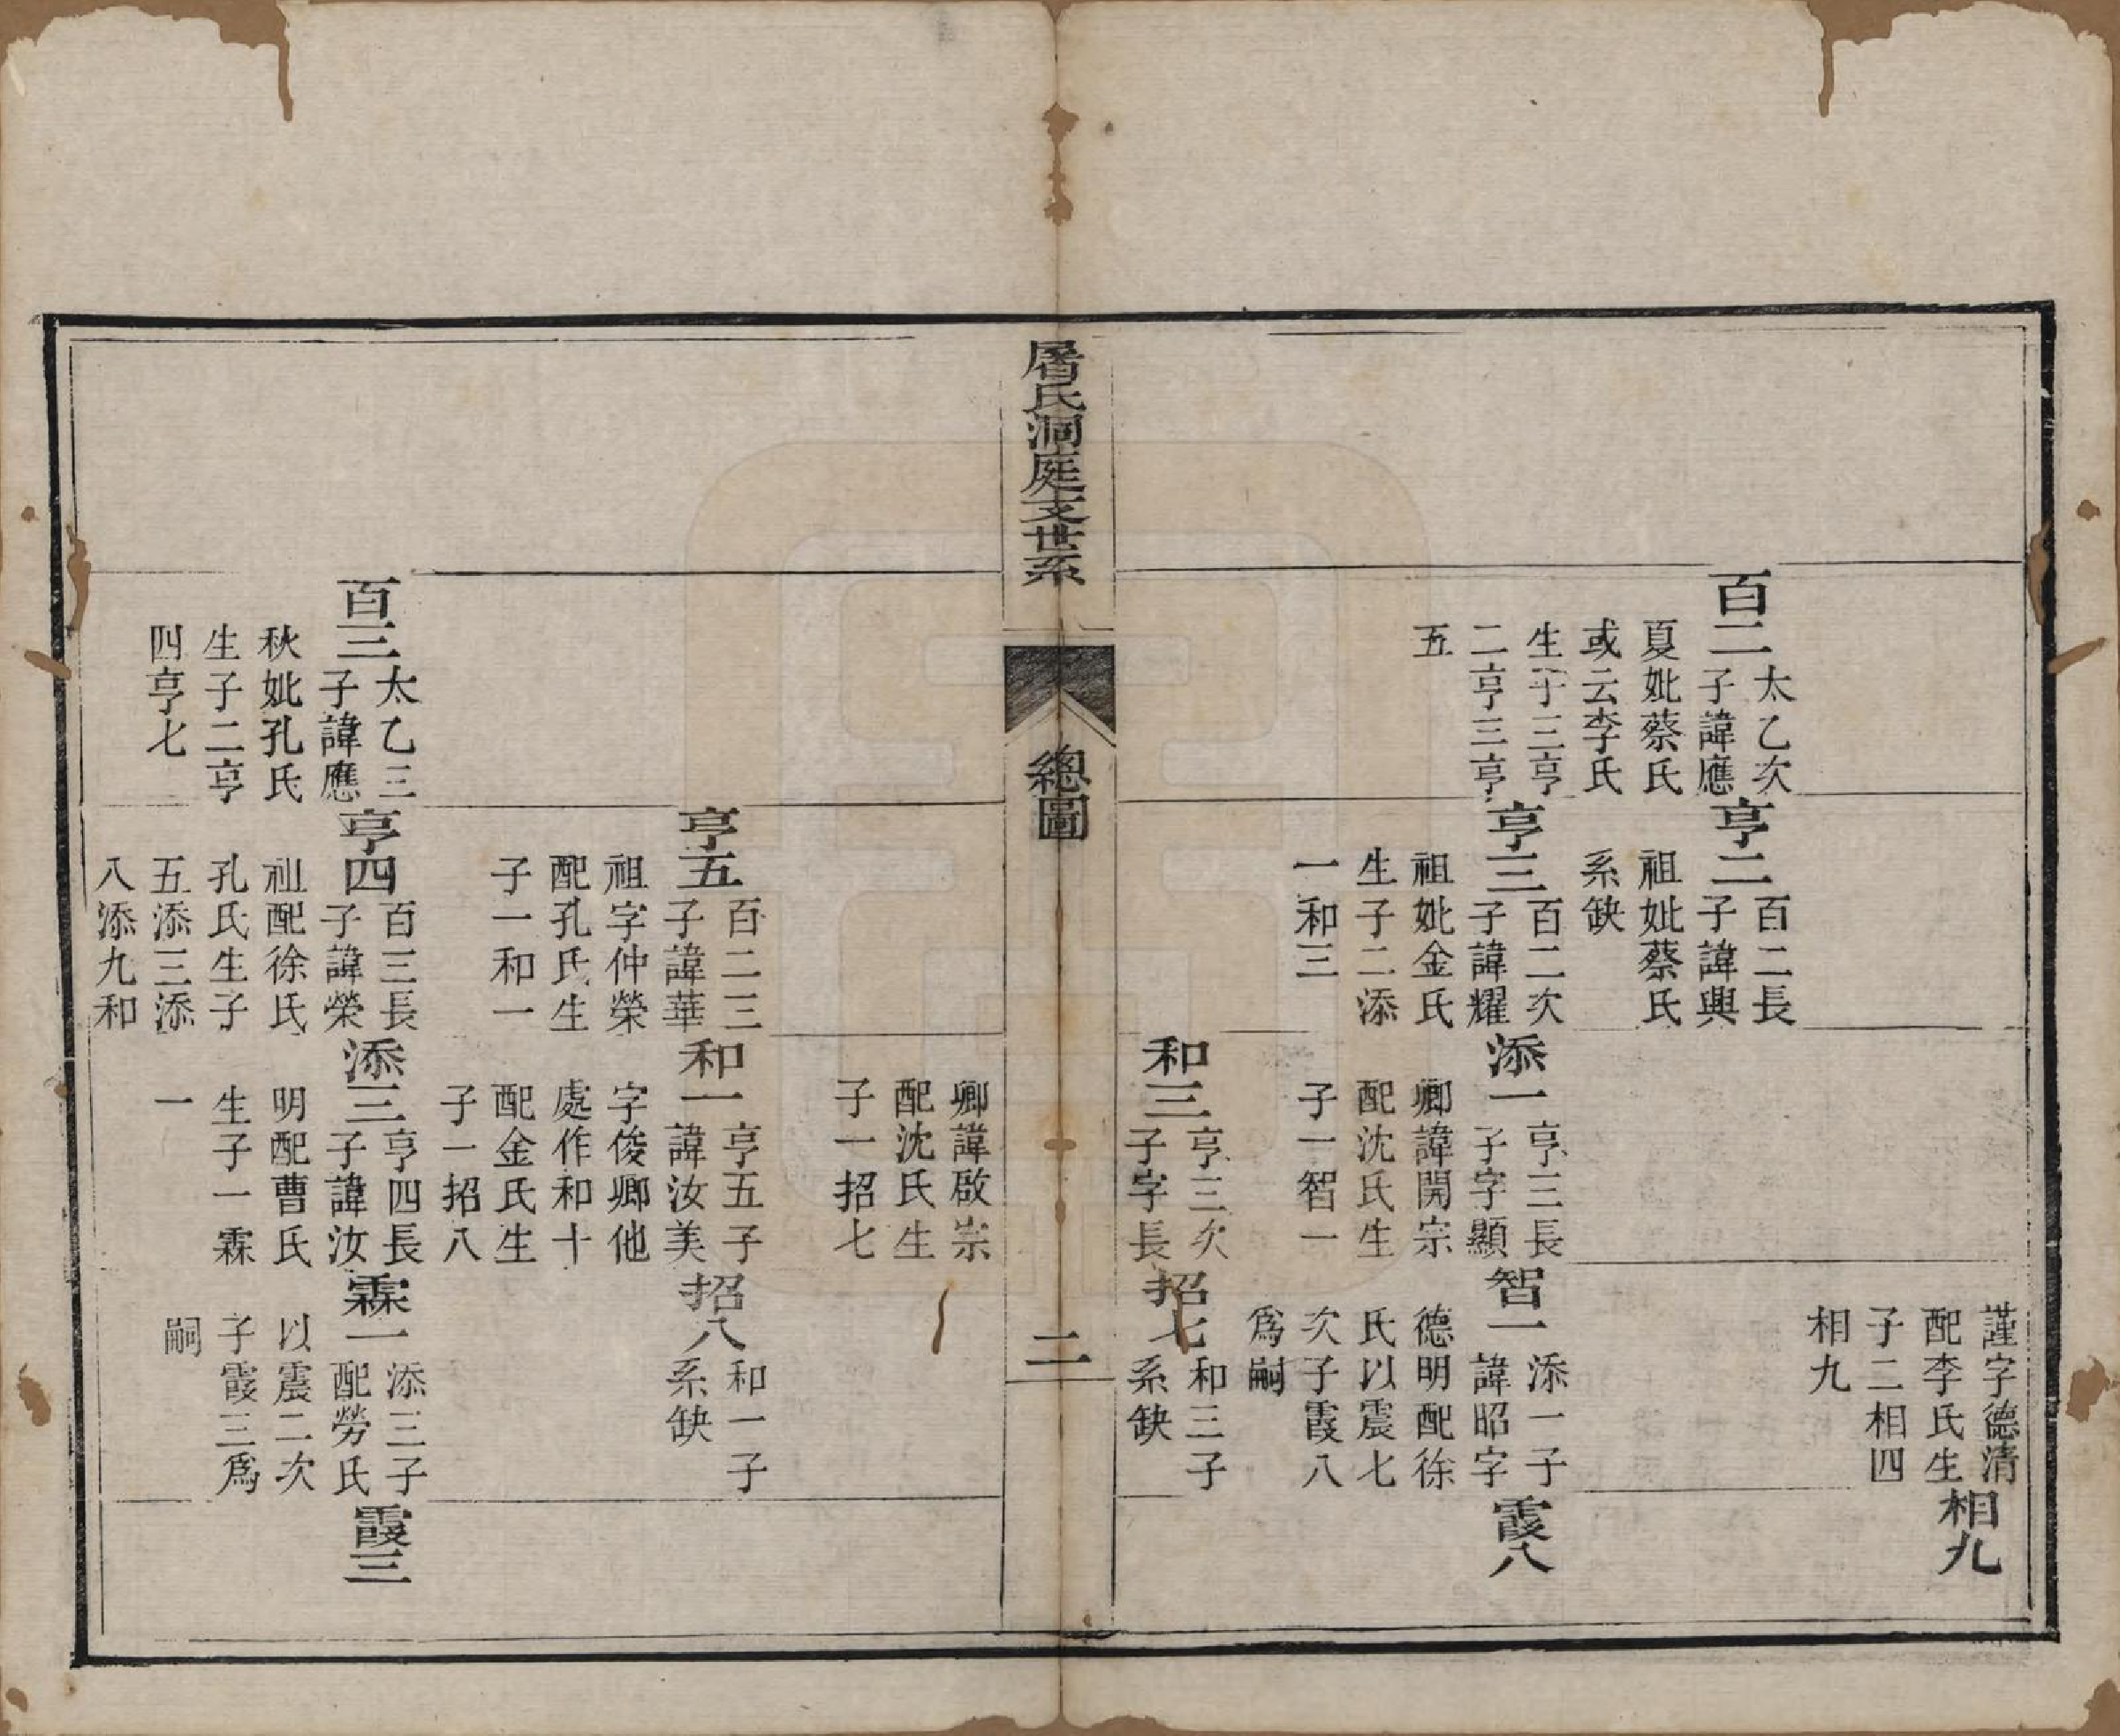 謹字德清
配李氏生
子二相四
相九
相九
百二
太乙次
子諱應
夏妣蔡氏
或云李氏
生子三亨
二亨三亨
五
亨二
百二長
子諱與
祖妣蔡氏
系缺
亨三
百二次
子諱耀
祖妣金氏
生子二添
一和三
添一
亨三長
子字顯
卿諱開宗
配沈氏生
子一智一
智一
添一子
諱昭字
德明配徐
氏以震七
次子霞八
爲嗣
霞八
和三
亨三次
子字長
招七
和三子
系缺
屠氏洞庭支世系
總圖
二
卿諱啟崇
配沈氏生
子一招七
亨五
百二三
子諱華
祖字仲榮
配孔氏生
子一和一
和一
亨五子
諱汝美
字俊卿他
處作和十
配金氏生
子一招八
招八
和一子
系缺
百三
太乙三
子諱應
秋妣孔氏
生子二亨
四亨七
亨四
百三長
子諱榮
祖配徐氏
孔氏生子
五添三添
八添九和
添三
亨四長
子諱汝
明配曹氏
生子一霖
一
霖一
添三子
配勞氏
以震二次
子霞三爲
嗣
霞三